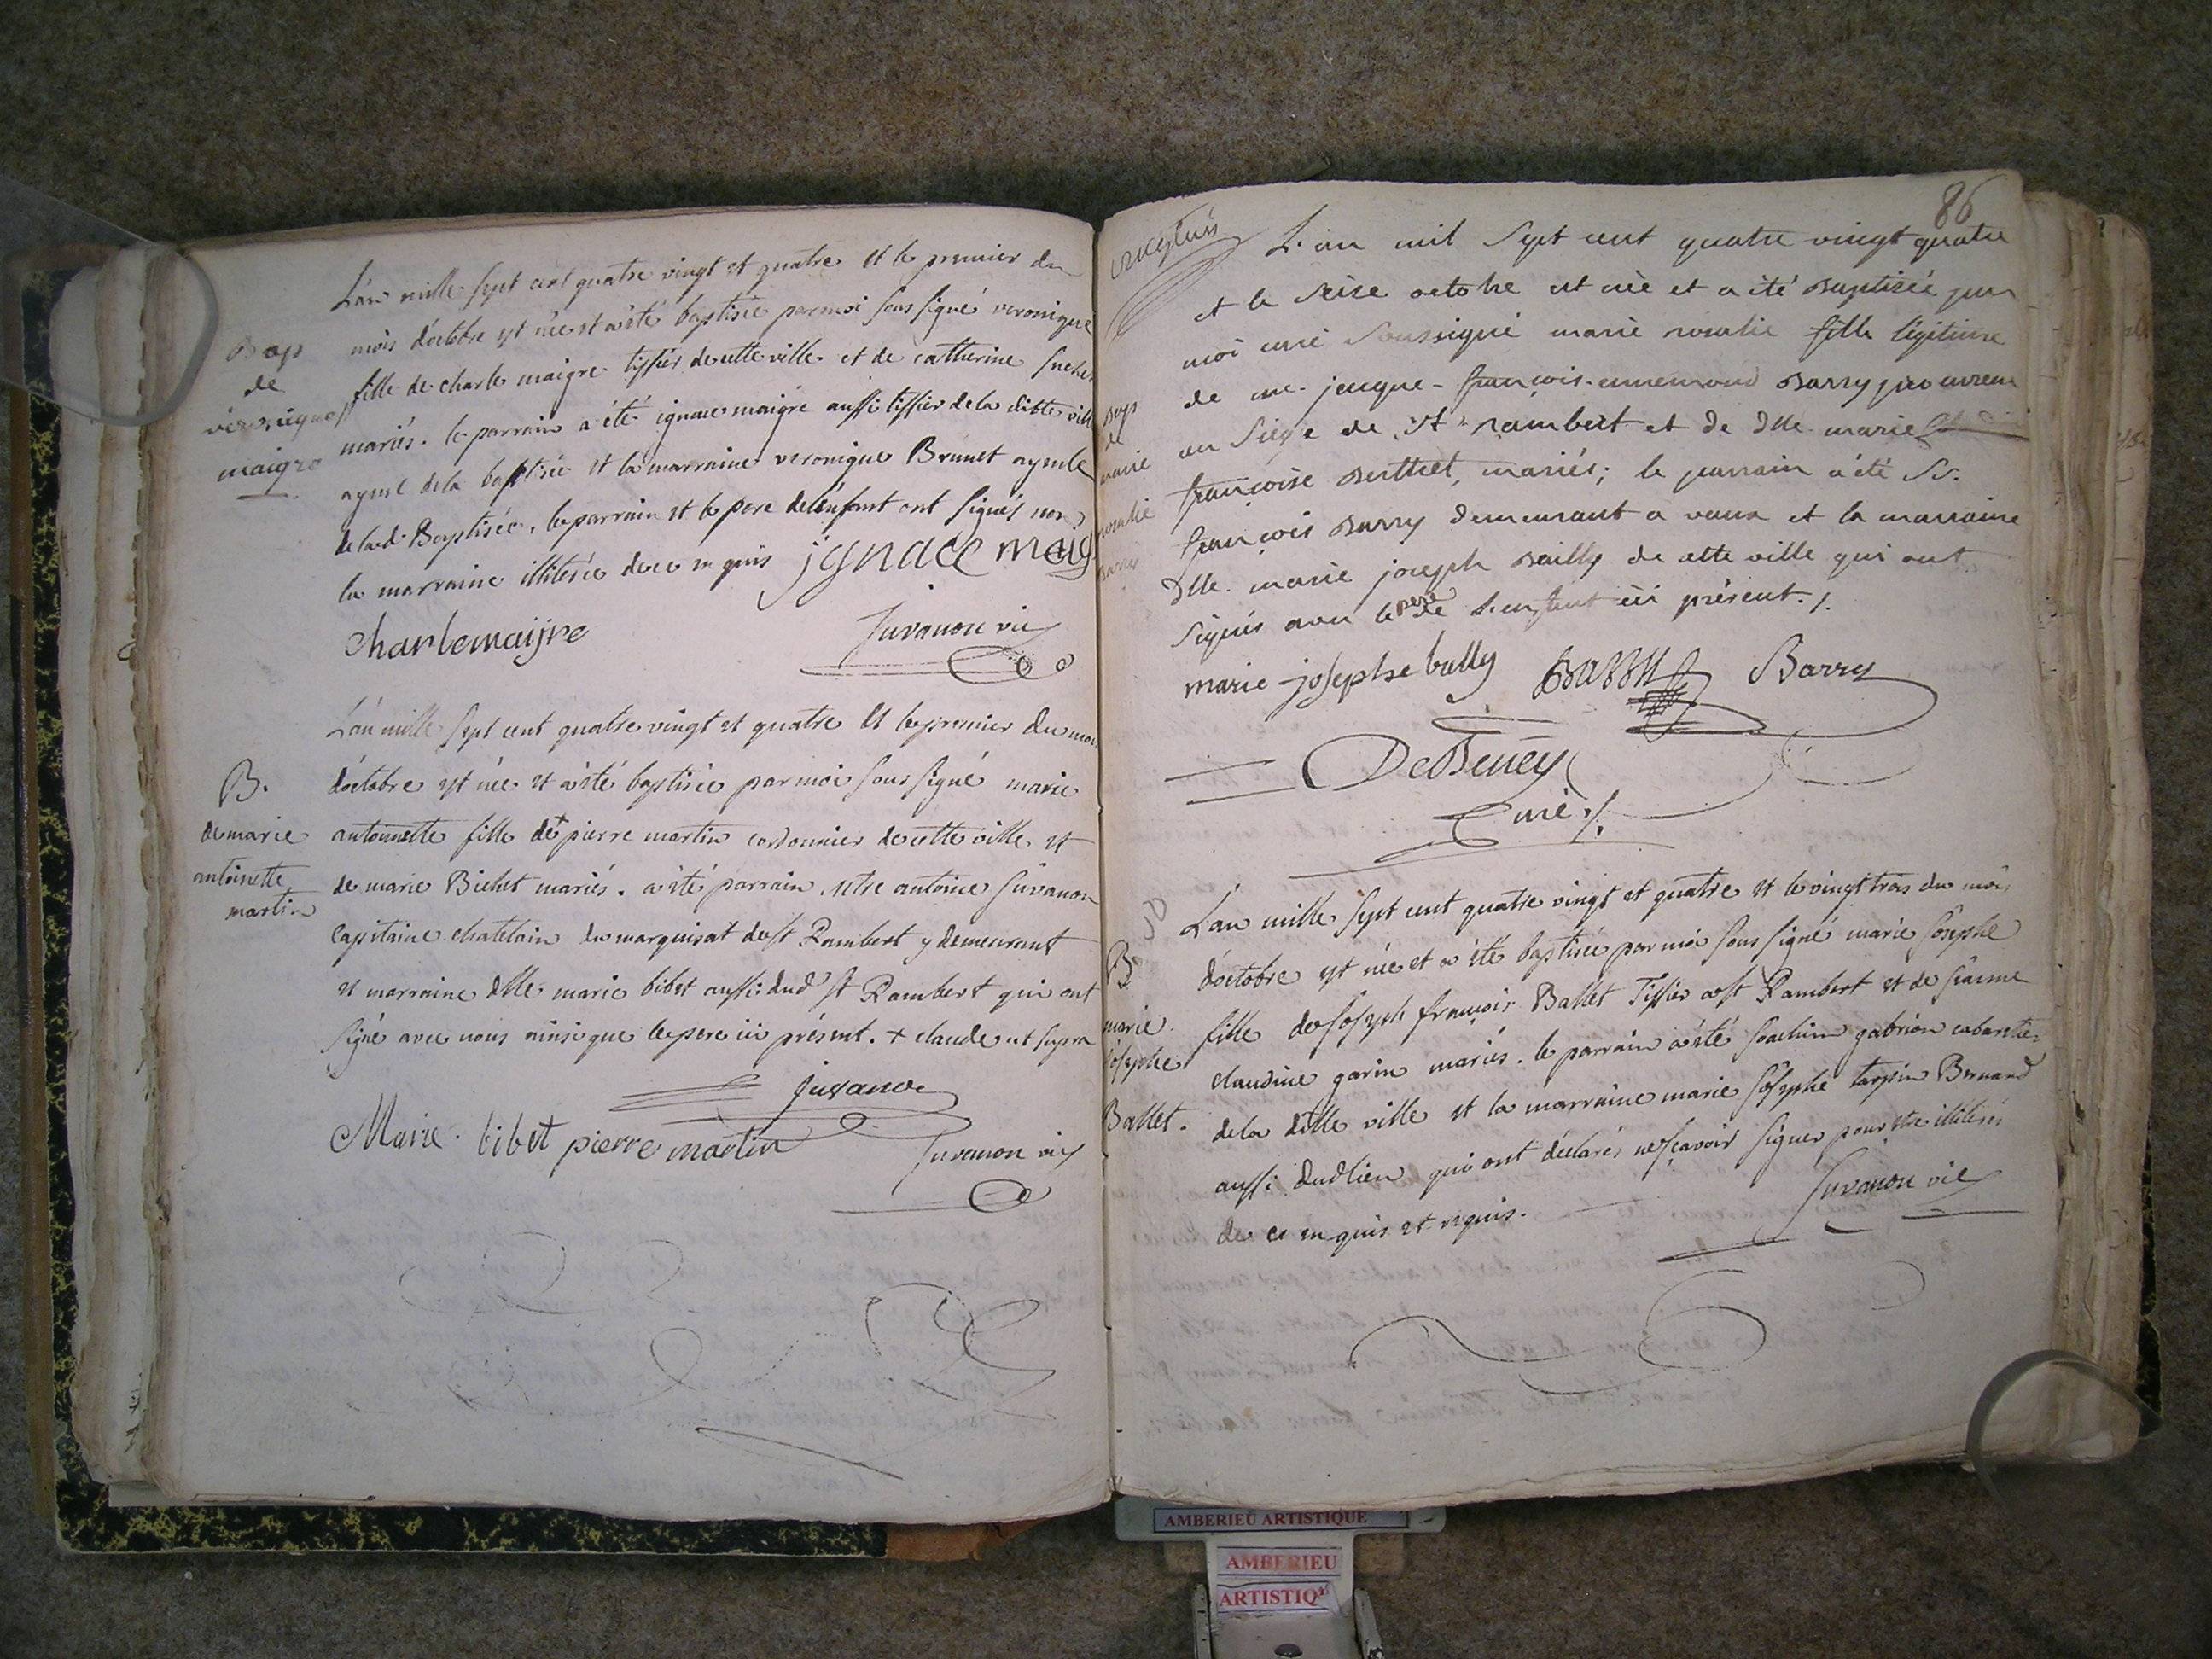 Bap
de
veronique
maigre
L'an mille sept cent quatre vingt et quatre et le premier du
mois d'octobre est née et a été baptisée par moi sous signé veronique
fille de charle maigre tissier de cette ville et de catherine
mariés. le parrain a été ignace maigre aussi tissier de la ditte ville
ayeul de la baptisée et la marraine veronique Brunet ayeule
de lad. Baptisée. le parrain et le pere de l'enfant ont signés non
la marraine illiterée de ce in quis jgnace maig
Charlemaigre Juvanon vic
B.
de marie
antoinette
martin
L'an mille sept cent quatre vingt et quatre et le premier du mois
d'octobre est née et a été baptisée par moi sous signé marie
antoinette fille de + pierre martin cordonnier de cette ville et
de marie Bichet mariés. a été parrain antoine Juvanon
capitaine chatelain du marquisat de st Rambert y demeurant
et marraine dlle marie bibet aussi dud st Rambert qui ont
signé avec nous ainsi que le pere ici présent. + claude ut supra
Juvanon
Marie bibet pierre martin Juvanon vic
86
Bap
de
marie
rosalie
Barry
L'an mil sept cent quatre vingt quatre
et le seise octobre est née et a été Baptisée par
moi curé soussigné marie rosalie fille légitime
de me. jacque-françois-ennemond Barry procureur
au siege de St rambert et de Dlle marie
françoise Berthet, mariés; le parrain a été Sr.
françois Barry demeurant a vaux et la marraine
Dlle. marie joseph Bailly de cette ville qui ont
signés avec le pere de l'enfant ici présent./.
marie-josephe bally Barry Barry
DeBeney
Curé /.
50
B
marie
Josephe
Ballet.
L'an mille sept cent quatre vingt et quatre et le vingt trois du mois
d'octobre est née et a été baptisée par moi sous signé marie Josephe
fille de Joseph françois Ballet Tissier a st Rambert et de Jeanne
claudine garin mariés. le parrain a été Joachim gabrion cabaretier
de la ditte ville et la marraine marie Josephe tarpin Bernard
aussi dud lieu qui ont déclarés ne sçavoir signer pour etre illiterés
de ce in quis et requis. Juvanon vic
AMBERIEU ARTISTIQUE
AMBERIEU
ARTISTIQ